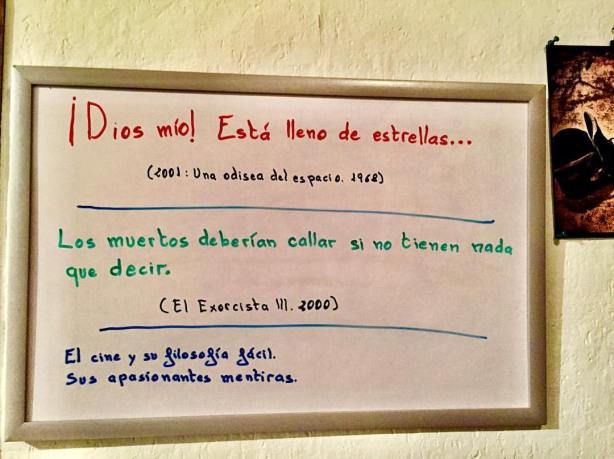 ¡Dios mío! Está lleno de estrellas...
(2001: Una odisea del espacio. 1968)
Los muertos deberían callar si no tienen nada
que decir.
(El Exorcista III. 2000)
El cine y su filosofía fácil.
Sus apasionantes mentiras.